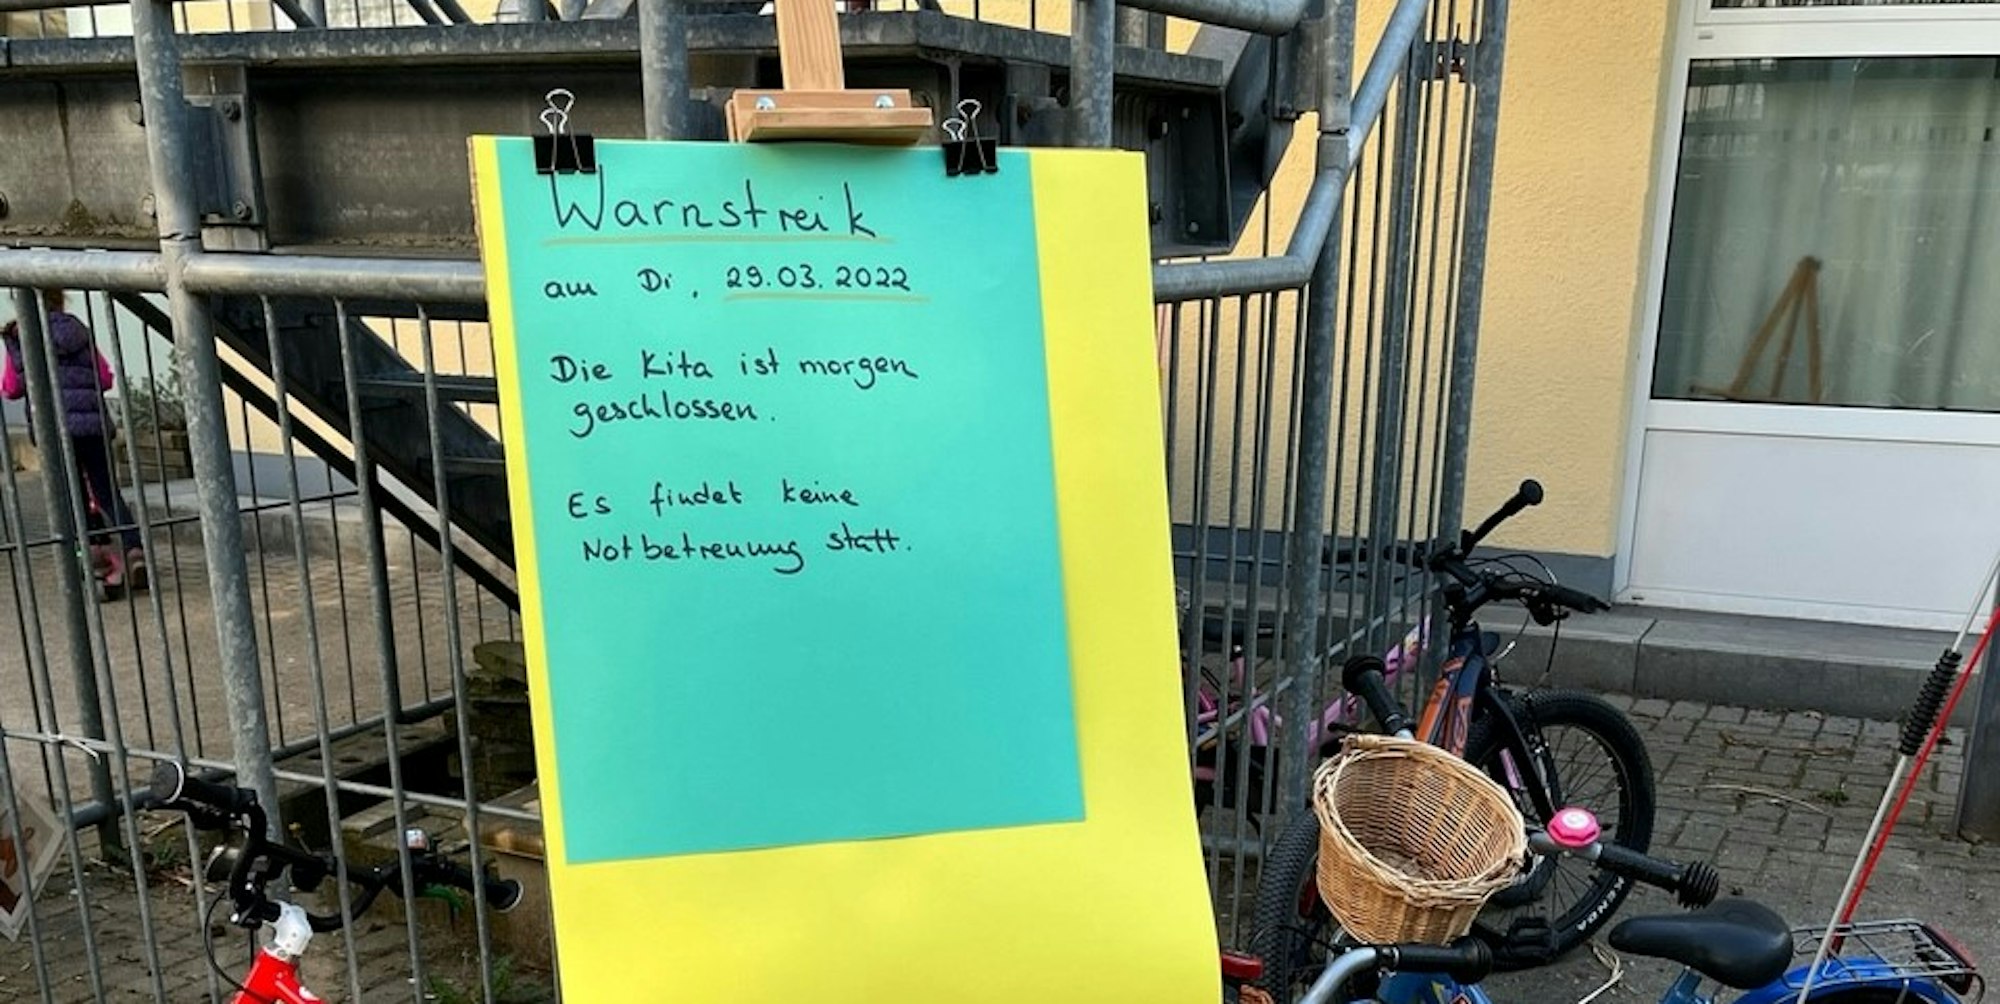 Warnstreik
am Di, 29.03.2022
Die Kita ist morgen
geschlossen.
Es findet keine
Notbetreuung statt.
KENDA